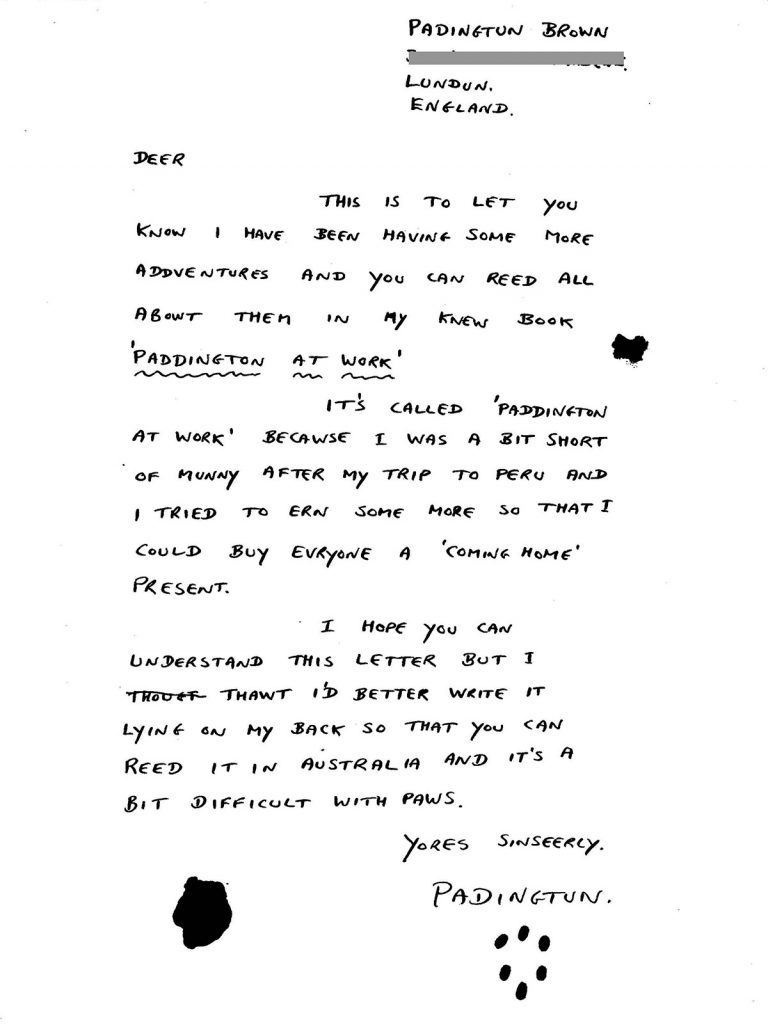 PADINGTUN BROWN
LUNDUN.
ENGLAND.
DEER
THIS IS TO LET YOU
KNOW I HAVE BEEN HAVING SOME MORE
ADDVENTURES AND YOU CAN REED ALL
ABOWT THEM IN MY KNEW BOOK
'PADDINGTON AT WORK'
IT'S CALLED 'PADDINGTON
AT WORK' BECAWSE I WAS A BIT SHORT
OF MUNNY AFTER MY TRIP TO PERU AND
I TRIED TO ERN SOME MORE SO THAT I
COULD BUY EVRYONE A 'COMING HOME'
PRESENT.
I HOPE YOU CAN
UNDERSTAND THIS LETTER BUT I
THOUGT THAWT I'D BETTER WRITE IT
LYING ON MY BACK SO THAT YOU CAN
REED IT IN AUSTRALIA AND IT'S A
BIT DIFFICULT WITH PAWS.
YORES SINSEERLY.
PADINGTUN.